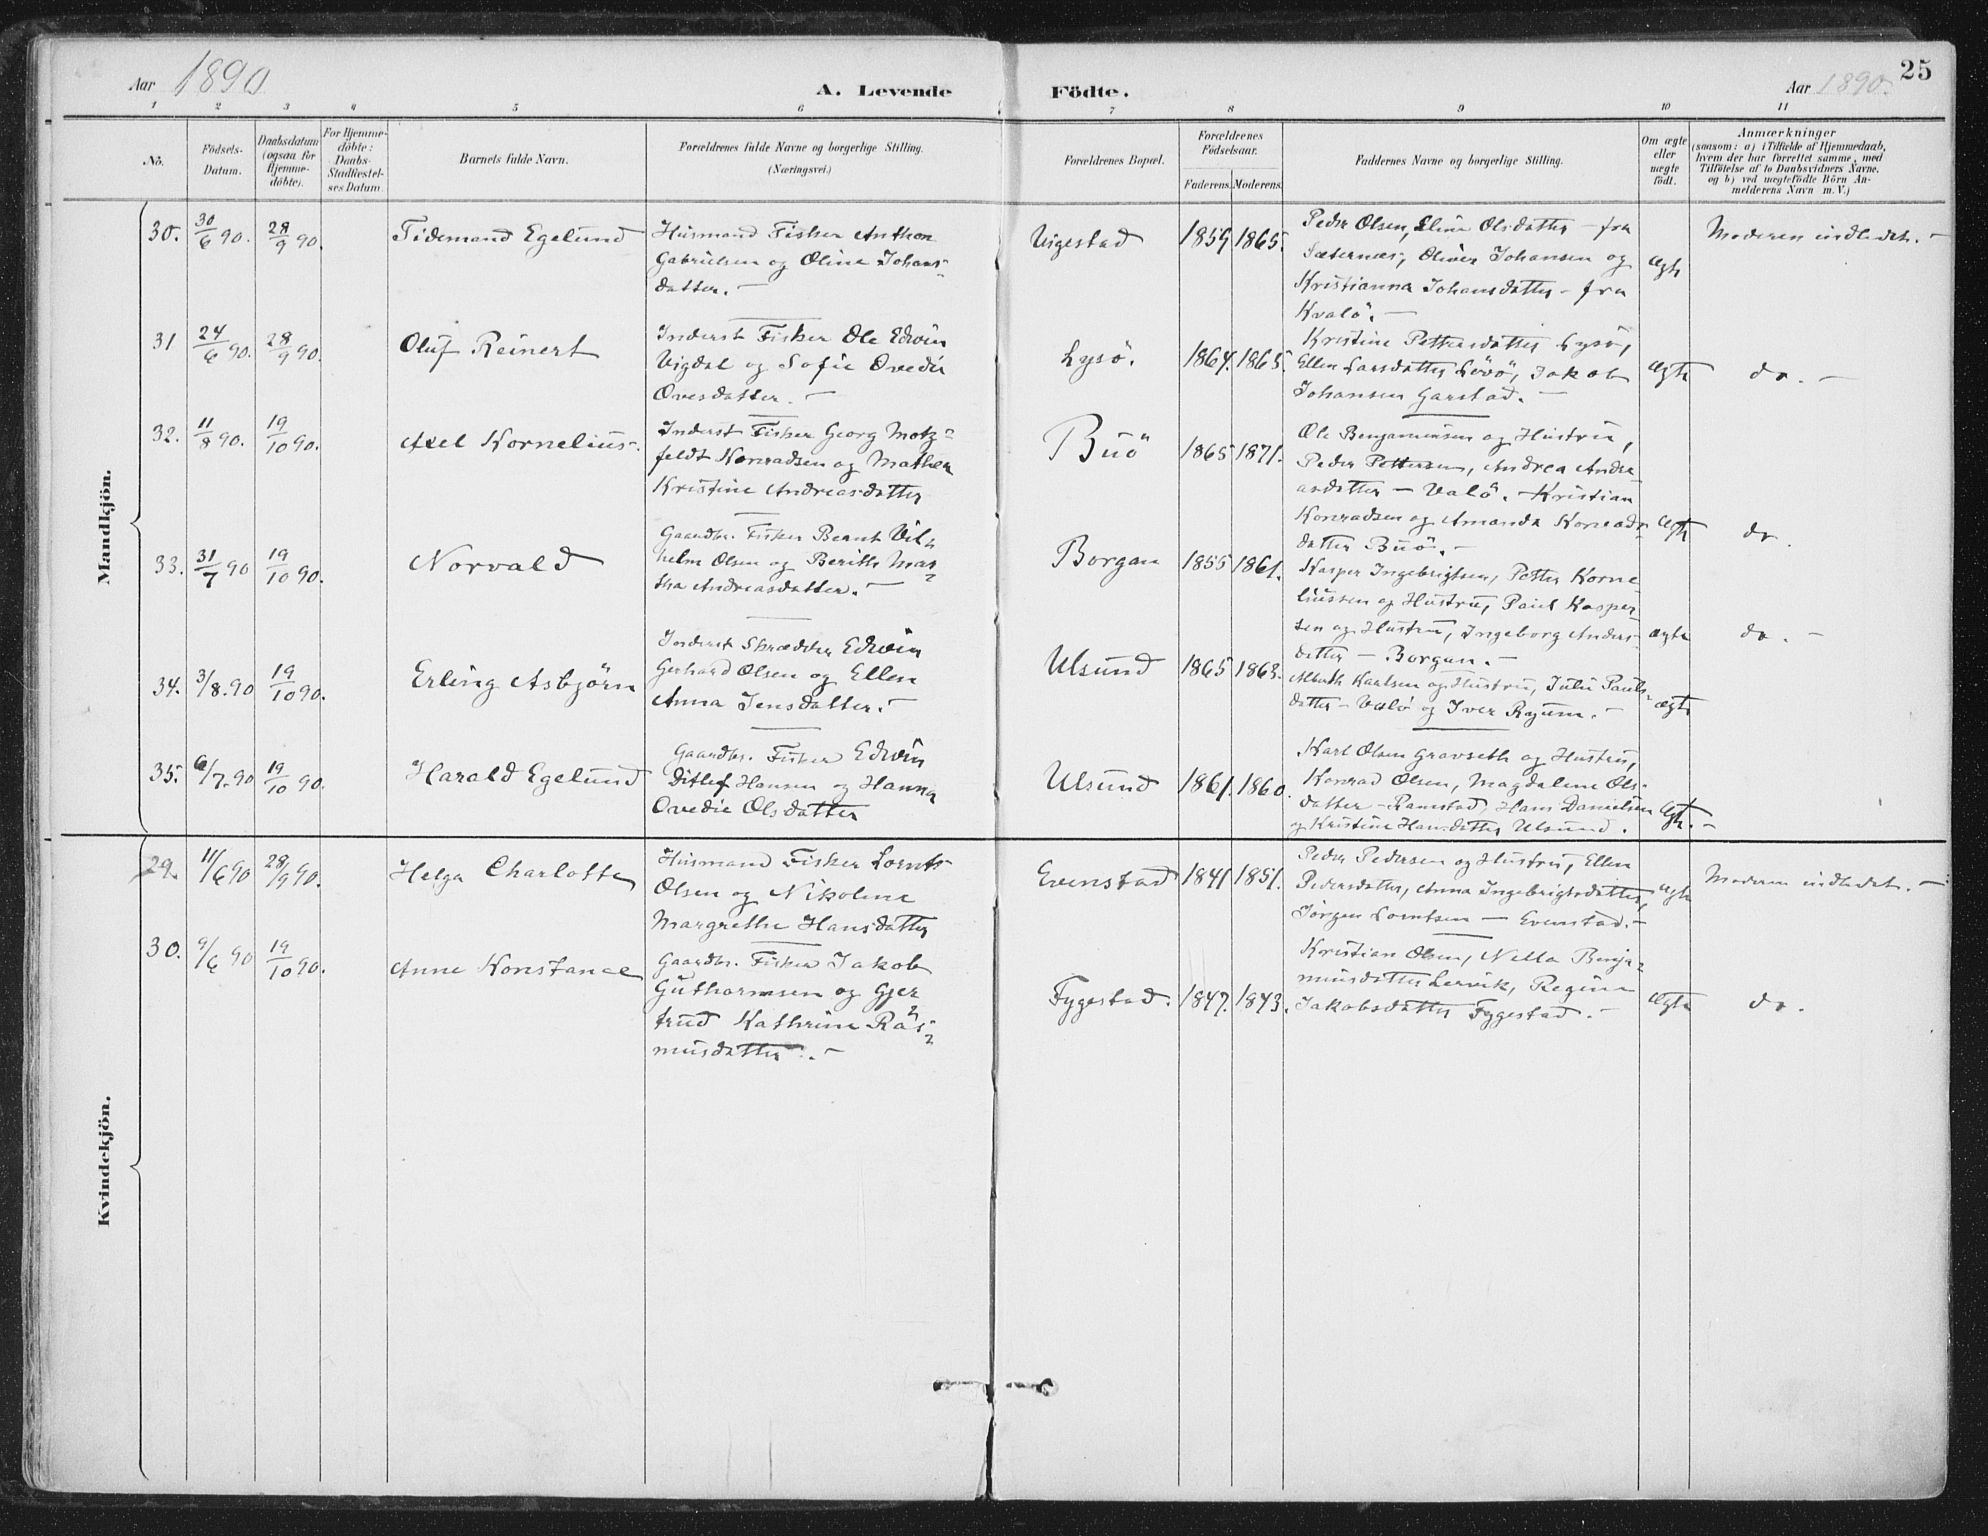 Aar 1890
A. Levende Födte.
Aar 1890.
25
1 2 3 4 5 6 7 8 9 10 11
No.
Födsels-Datum.
Daabsdatum (ogsaa for Hjemme-döbte).
For Hjemme-döbte: Daabs-Stadfæstel-ses Datum.
Barnets fulde Navn.
Forældrenes fulde Navne og borgerlige Stilling.
(Næringsvei.)
Forældrenes Bopæl.
Forældrenes Födselsaar.
Faderens. Moderens.
Faddernes Navne og borgerlige Stilling.
Om ægte eller uægte födt.
Anmærkninger
(saasom: a) i Tilfælde af Hjemmedaab,
hvem der har forrettet samme, med
Tilföielse af to Daabsvidners Navne.
og b) ved uægtefödte Börn An-
melderens Navn m. V.)
Mandkjön.
30. 30/6 90. 28/9 90. Tidemand Egelund
Husmand Fisker Anthon
Gabrielsen og Oline Johans-
datter. -
Vigestad 1859 1865.
Peder Olsen, Eline Olsdatter - fra
Sæternæs, Oliver Johansen og
Kristianna Johansdatter - fra
Kvalö. -
ægte
Moderen indledet. -
31 24/6 90. 28/9 90. Oluf Reinert
Inderst Fisker Ole Edvin
Vigdal og Sofie Ovedie
Ovesdatter. -
Lysö. 1864. 1865.
Kristine Pettersdatter Lysö,
Ellen Larsdatter Lövö, Jakob
Johansen Garstad. -
ægte
do. -
32. 11/8 90. 19/10 90. Axel Kornelius.
Inderst Fisker Georg Motz-
feldt Konradsen og Mathea
Kristine Andreasdatter
Buö 1865 1871.
Ole Benjaminsen og Hustru,
Peder Pettersen, Andrea Andre
asdatter - Valö. - Kristian
Konradsen og Amanda Konrads-
datter Buö. -
ægte
do.
33. 31/7 90 19/10 90. Norvald
Gaardbr. Fisker Bernt Vil-
helm Olsen og Berith Mar-
tha Andreasdatter. -
Borgan 1855 1861.
Kasper Ingebrigtsen, Petter Korne
liussen og Hustru, Paul Kasper
sen og Hustru, Ingeborg Anders-
datter - Borgan. -
ægte
do. -
34. 3/8.90 19/10 90. Erling Asbjörn
Inderst Skrædder Edvin
Gerhard Olsen og Ellen
Anna Jensdatter. -
Ulsund 1865 1863.
Albert Karlsen og Hustru, Julie Pauls-
datter - Valö og Iver Ryum. -
ægte
35. 6/7.90 19/10 90. Harald Egelund
Gaardbr. Fisker Edvin
Ditlef Hansen og Hanna
Ovedie Olsdatter
Ulsund 1861. 1860.
Karl Olsen Gravseth og Hustru,
Konrad Olsen, Magdalene Ols-
datter - Ramstad, Hans Danielsen
og Kristine Hansdatter Ulsund.
ægte. -
Kvindekjön.
29. 11/6 90 28/9 90. Helga Charlotte
Husmand Fisker Lornts
Olsen og Nikoline
Margrethe Hansdatter
Evenstad 1841 1851.
Peder Pedersen og Hustru, Ellen
Pedersdatter, Anna Ingebrigtsdatter,
Jörgen Lorntsen - Evenstad. -
ægte
Moderen indledet. -
30. 9/6 90 19/10 90. Anne Konstance
Gaardbr. Fisker Jakob
Guthormsen og Gjer
trud Kathrine Ras-
musdatter. -
Fygestad. 1847. 1843.
Kristian Olsen, Nella Benja-
minsdatter Lervik, Regine
Jakobsdatter Fygestad. -
ægte
do.